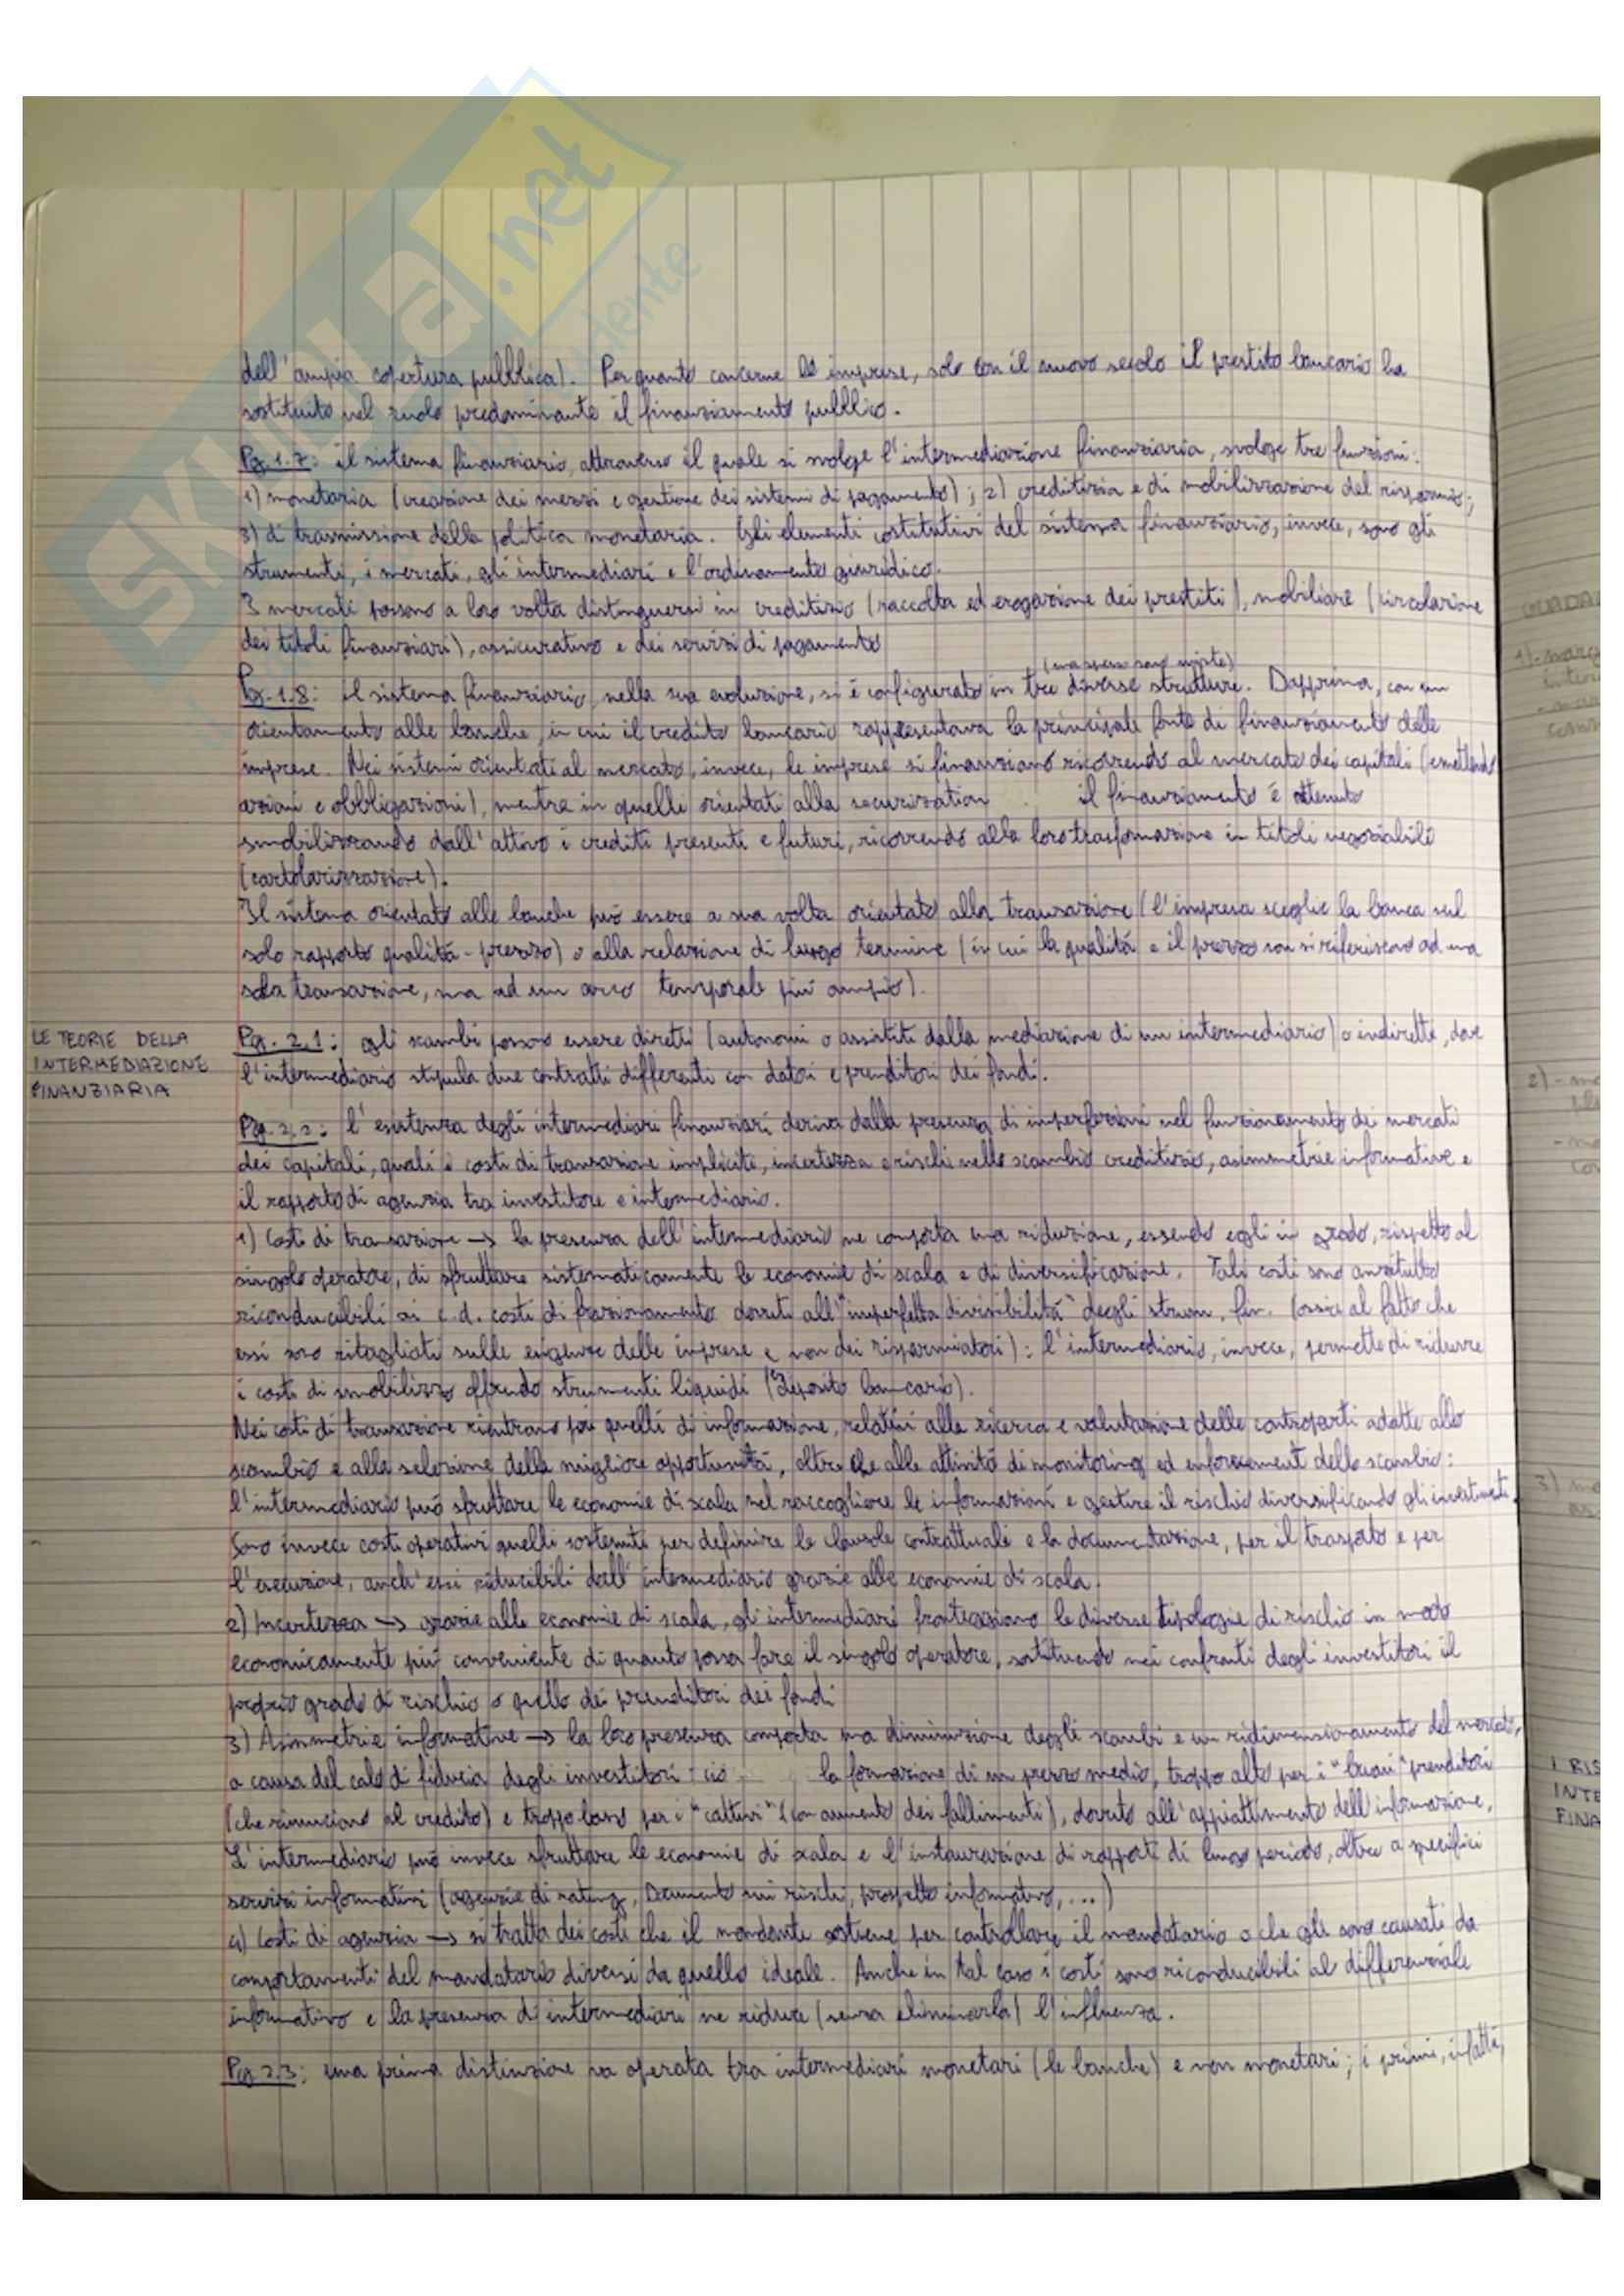 SKUOLa.net
dell'ampia copertura pubblica). Per quanto concerne le imprese, solo con il nuovo secolo il prestito bancario ha
sostituito nel ruolo predominante il finanziamento pubblico.
Pg. 1.7: il sistema finanziario, attraverso il quale si svolge l'intermediazione finanziaria, svolge tre funzioni:
1) monetaria (creazione dei mezzi e gestione dei sistemi di pagamento); 2) creditizia e di mobilizzazione del risparmio;
3) di trasmissione della politica monetaria. Gli elementi costitutivi del sistema finanziario, invece, sono gli
strumenti, i mercati, gli intermediari e l'ordinamento giuridico.
I mercati possono a loro volta distinguersi in creditizio (raccolta ed erogazione dei prestiti), mobiliare (circolazione
dei titoli finanziari), assicurativo e dei servizi di pagamento
(ma spesso sono miste)
Pg. 1.8: il sistema finanziario, nella sua evoluzione, si è configurato in tre diverse strutture. Dapprima, con un
orientamento alle banche, in cui il credito bancario rappresentava la principale fonte di finanziamento delle
imprese. Nei sistemi orientati al mercato, invece, le imprese si finanziano ricorrendo al mercato dei capitali (emettendo
azioni e obbligazioni), mentre in quelli orientati alla securization il finanziamento è ottenuto
smobilizzando dall'attivo i crediti presenti e futuri, ricorrendo alla loro trasformazione in titoli negoziabili
(cartolarizzazione).
Il sistema orientato alle banche può essere a sua volta orientato alla transazione (l'impresa sceglie la banca sul
solo rapporto qualità-prezzo) o alla relazione di lungo termine (in cui la qualità e il prezzo non si riferiscono ad una
sola transazione, ma ad un arco temporale più ampio).
LE TEORIE DELLA
INTERMEDIAZIONE
FINANZIARIA
Pg. 2.1: gli scambi possono essere diretti (autonomi o assistiti dalla mediazione di un intermediario) o indiretti, dove
l'intermediario stipula due contratti differenti con datori e prenditori dei fondi.
Pg. 2.2: l'esistenza degli intermediari finanziari deriva dalla presenza di imperfezioni nel funzionamento dei mercati
dei capitali, quali i costi di transazione implicite, incertezza e rischi nello scambio creditizio, asimmetrie informative e
il rapporto di agenzia tra investitore e intermediario.
1) Costi di transazione → la presenza dell'intermediario ne comporta una riduzione, essendo egli in grado, rispetto al
singolo operatore, di sfruttare sistematicamente le economie di scala e di diversificazione. Tali costi sono anzitutto
riconducibili ai c.d. costi di frazionamento dovuti all'"imperfetta divisibilità" degli strum. fin. (ossia al fatto che
essi sono ritagliati sulle esigenze delle imprese e non dei risparmiatori): l'intermediario, invece, permette di ridurre
i costi di smobilizzo offrendo strumenti liquidi (deposito bancario).
Nei costi di transazione rientrano poi quelli di informazione, relativi alla ricerca e valutazione delle controparti adatte allo
scambio e alla selezione della migliore opportunità, oltre che alle attività di monitoring ed enforcement dello scambio:
l'intermediario può sfruttare le economie di scala nel raccogliere le informazioni e gestire il rischio diversificando gli investimenti.
Sono invece costi operativi quelli sostenuti per definire le clausole contrattuali e la documentazione, per il trasporto e per
l'esecuzione, anch'essi riducibili dall'intermediario grazie alle economie di scala.
2) Incertezza → grazie alle economie di scala, gli intermediari fronteggiano le diverse tipologie di rischio in modo
economicamente più conveniente di quanto possa fare il singolo operatore, sostituendo nei confronti degli investitori il
proprio grado di rischio a quello dei prenditori dei fondi
3) Asimmetrie informative → la loro presenza comporta una diminuzione degli scambi e un ridimensionamento del mercato,
a causa del calo di fiducia degli investitori: ciò la formazione di un prezzo medio, troppo alto per i "buoni" prenditori
(che rinunciano al credito) e troppo basso per i "cattivi" (con aumento dei fallimenti), dovuto all'appiattimento dell'informazione.
L'intermediario può invece sfruttare le economie di scala e l'instaurazione di rapporti di lungo periodo, oltre a specifici
servizi informativi (agenzie di rating, Documento sui rischi, prospetto informativo, ...)
4) Costi di agenzia → si tratta dei costi che il mandante sostiene per controllare il mandatario o che gli sono causati da
comportamenti del mandatario diversi da quello ideale. Anche in tal caso i costi sono riconducibili al differenziale
informativo e la presenza di intermediari ne riduce (senza eliminarla) l'influenza.
Pg 2.3: una prima distinzione va operata tra intermediari monetari (le banche) e non monetari; i primi, infatti,